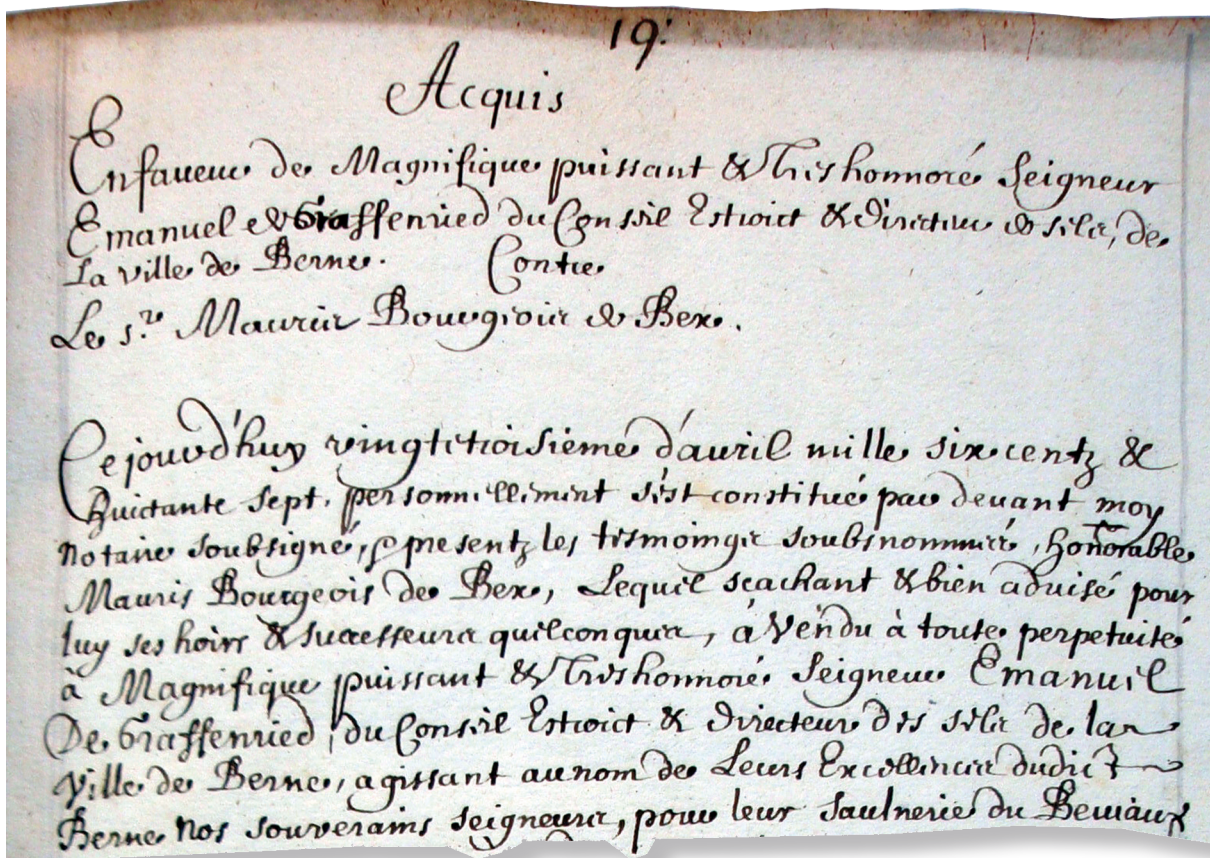 19:
Acquis
En faveur de Magnifique puissant & Tres honnoré Seigneur
Emanuel de Graffenried du Conseil Estroict & directeur de sels, de
La ville de Berne. Contre
Le s.r Mauris Bourgeois de Bex.
Ce jourd'huy vingtetroisieme d'avril mille six centz &
huictante sept, personnellement s'est constitué par devant moy
notaire soubsigné, & presentz les tesmoings soubsnommés, honnorable
Mauris Bourgeois de Bex, Lequel sçachant & bien advisé pour
luy ses hoirs & successeurs quelconques, à vendu à toute perpetuité
à Magnifique puissant & Tres honnoré Seigneur Emanuel
De Graffenried, du Conseil Estroict & directeur des sels de la
ville de Berne, agissant au nom de Leurs Excellences dudict
Berne nos souverains seigneurs, pour leur saulnerie du Bevieux